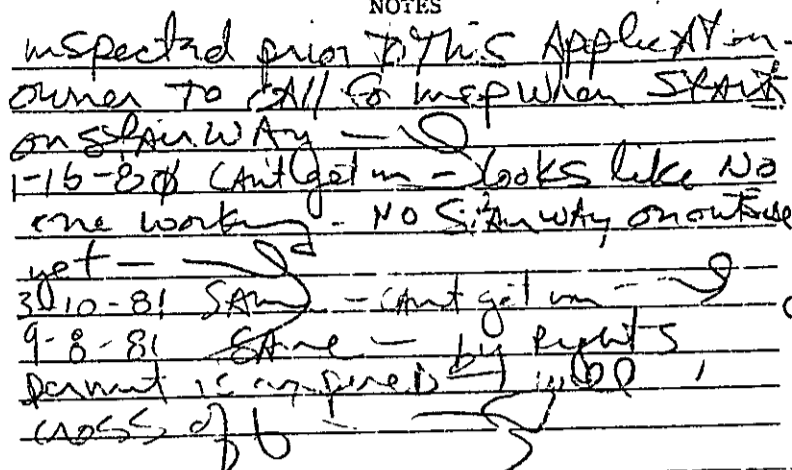 NOTES
inspected prior to this Application -
owner to call for insp when start
on stairway -
1-16-80 Can't get in - looks like No
one working - No Stairway on outside
yet -
3-10-81 Same - can't get in -
9-8-81 Same - by rights
permit is expired
cross off -